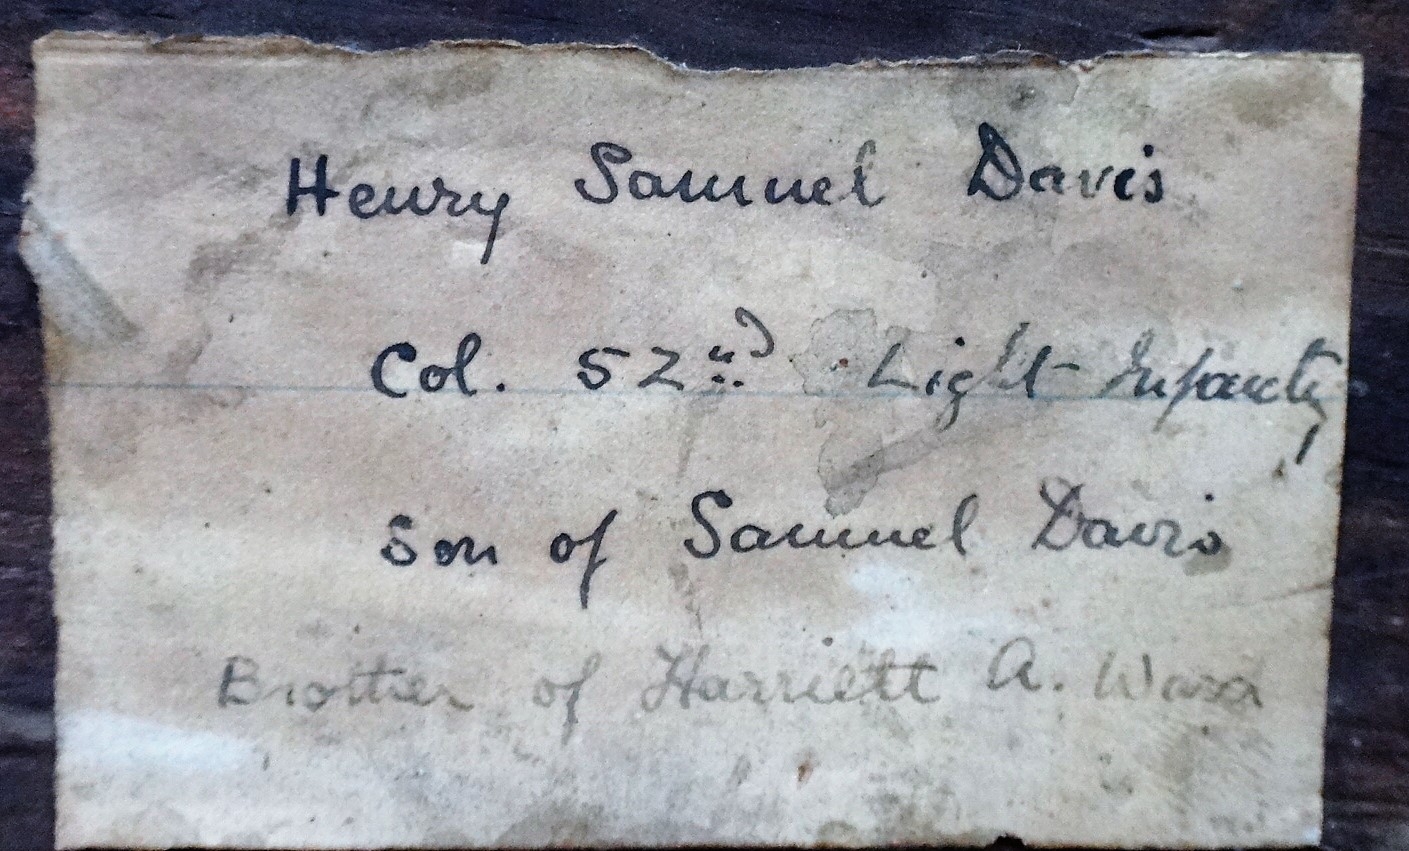 Henry Samuel Davis
Col. 52nd Light Infantry
Son of Samuel Davis
Brother of Harriett A. Ward